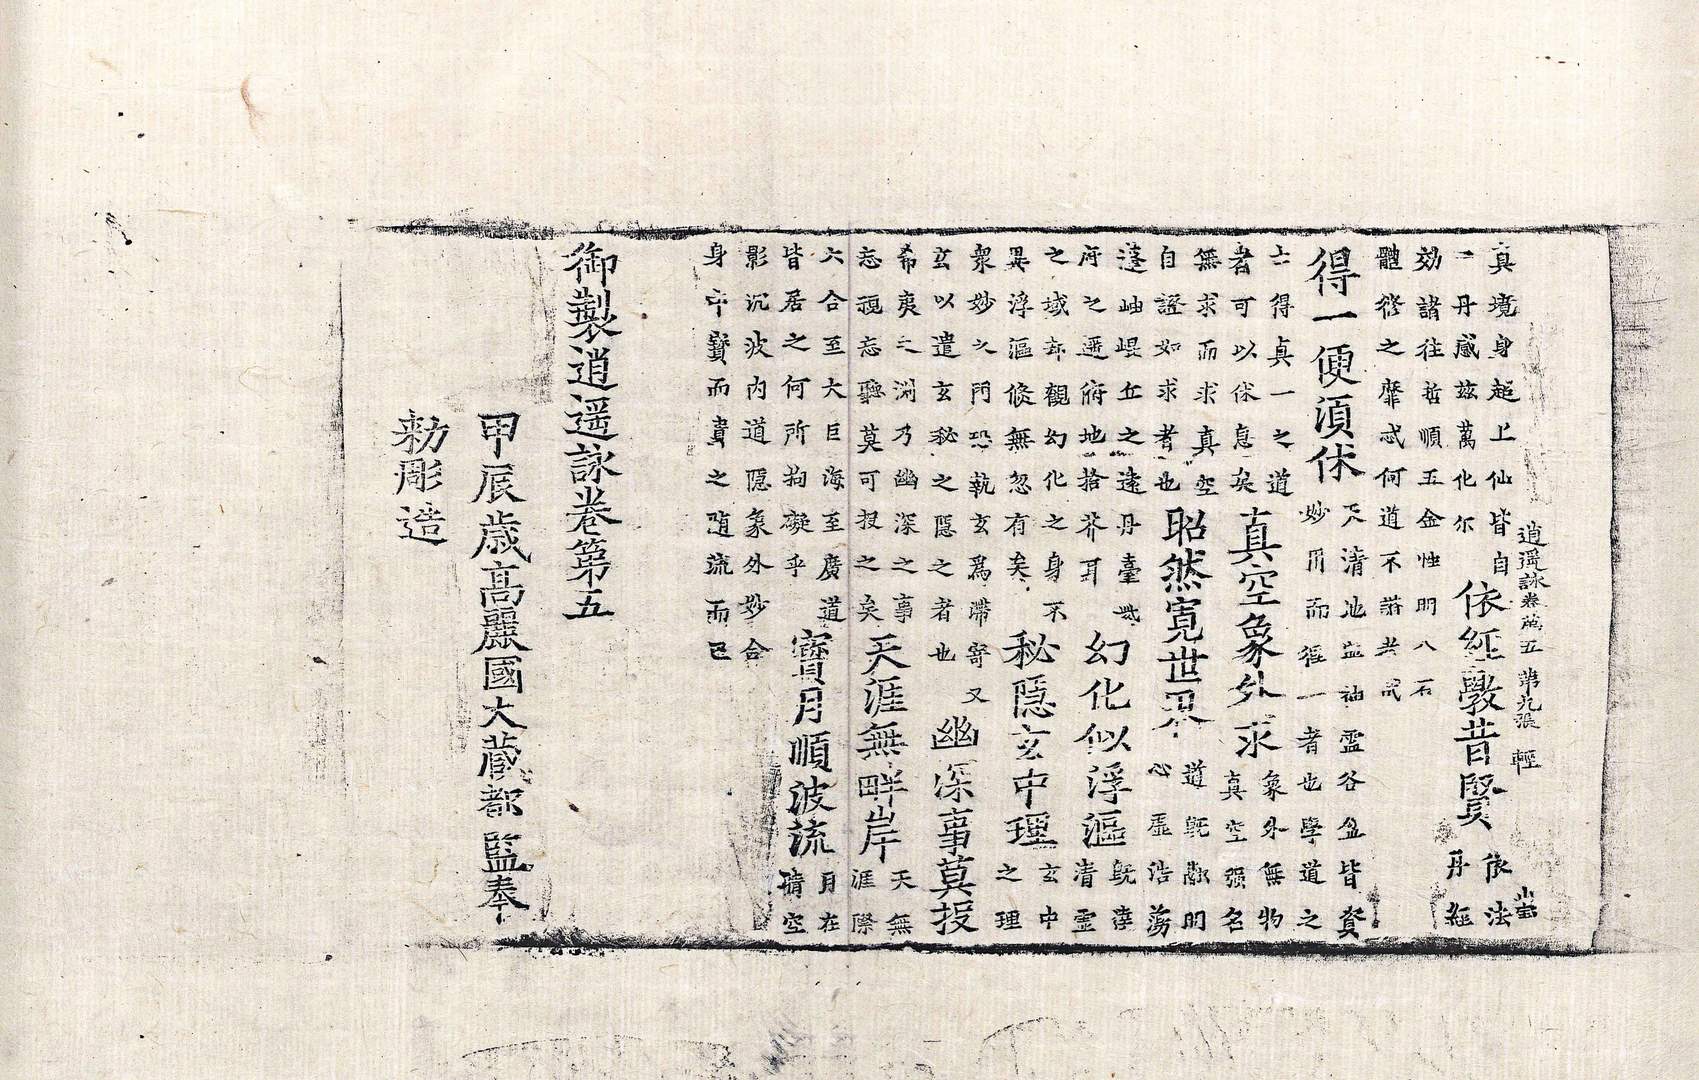 逍遥詠卷苐五 第九張 輕
真境身超上仙皆自
一丹感茲萬化尔
依經敎昔賢
依法
丹經
効諸往哲順五金性明八石
體修之靡忒何道不諧共成
得一便湏休
天清地寧神霊谷盈皆資
妙用而得一者也學道之
士得真一之道
者可以休息矣
真空象外求
象外無物
真空强名
無求而求真空
自證如求者也
昭然寛世界
道既敷明
心虛浩蕩
蓬岫崐丘之遠丹臺
府之遥俯地拾芥耳
幻化似浮漚
既淳
清霊
之域却觀幻化之身不
異浮漚倐無忽有矣
秘隱玄中理
玄中
之理
衆妙之門恐執玄爲滯寄又
玄以遣玄秘之隱之者也
幽深事莫投
希夷之渊乃幽深之事
忘視忘聽莫可投之矣
天涯無畔岸
天無
涯際
六合至大巨海至廣道
皆居之何所拘礙乎
寳月順波流
月在
晴空
影沉波内道隱象外妙合
身中寳而貴之随流而已
御製逍遥詠卷第五
甲辰歲高麗國大藏都監奉
勑彫造